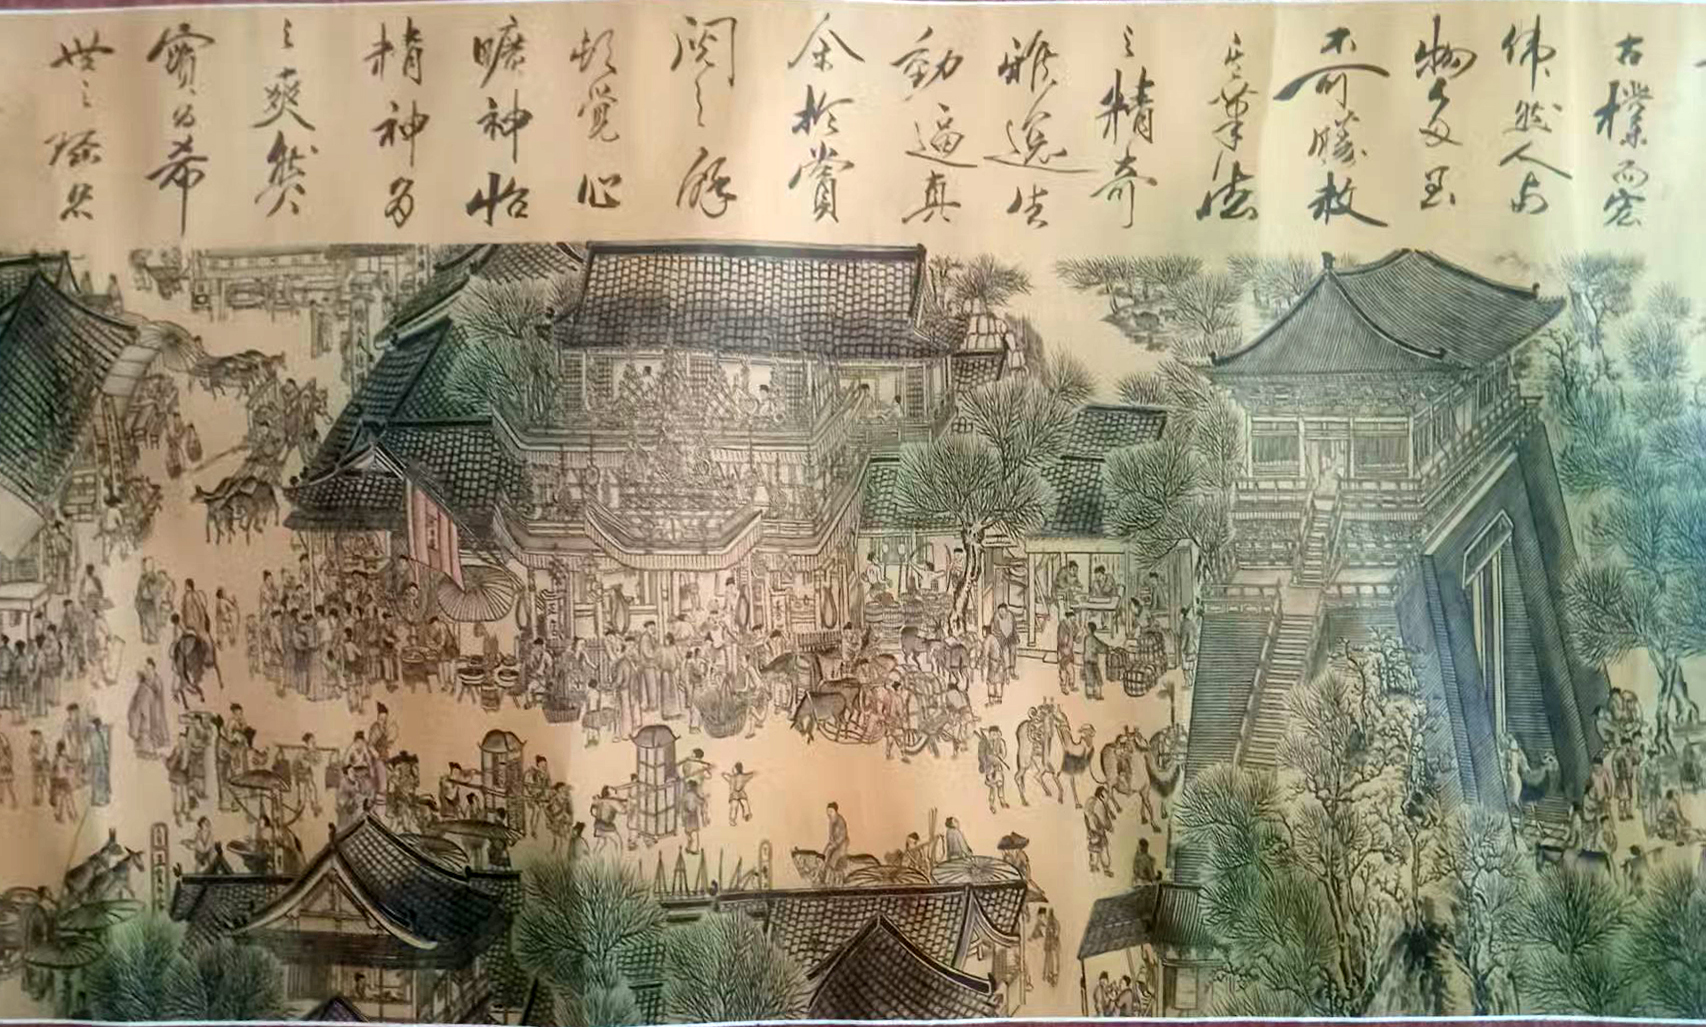 古樸而宏
偉然人与
物多至
不可勝數
其筆法
之精奇
雅逸生
動逼真
余於賞
閱之餘
頓覺心
曠神怡
精神為
之爽然
寶為希
世之